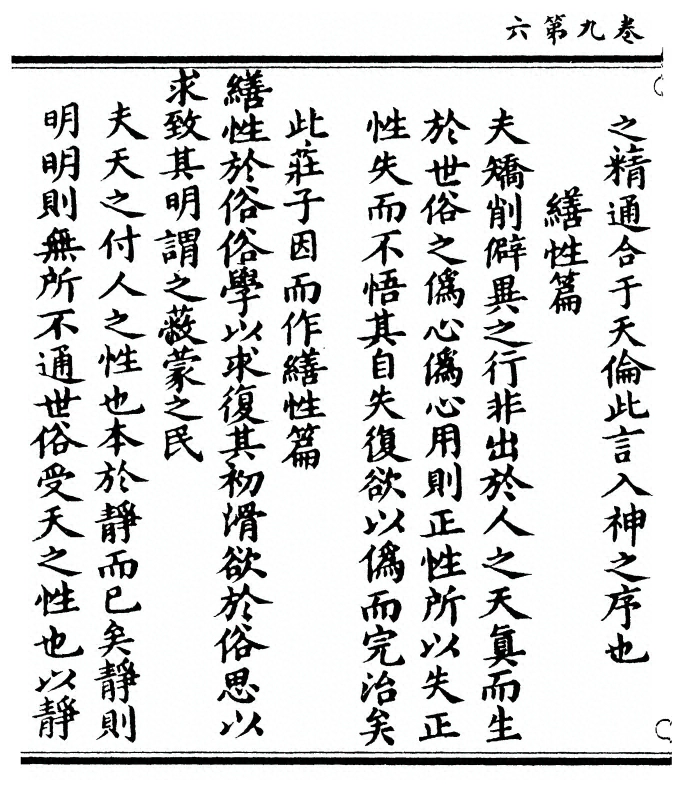 六第九卷
之精通合于天倫此言入神之序也
繕性篇
夫矯削僻異之行非出於人之天真而生
於世俗之偽心偽心用則正性所以失正
性失而不悟其自失復欲以偽而完治矣
此莊子因而作繕性篇
繕性於俗俗學以求復其初滑欲於俗思以
求致其明謂之蔽蒙之民
夫天之付人之性也本於靜而已矣靜則
明明則無所不通世俗受天之性也以靜